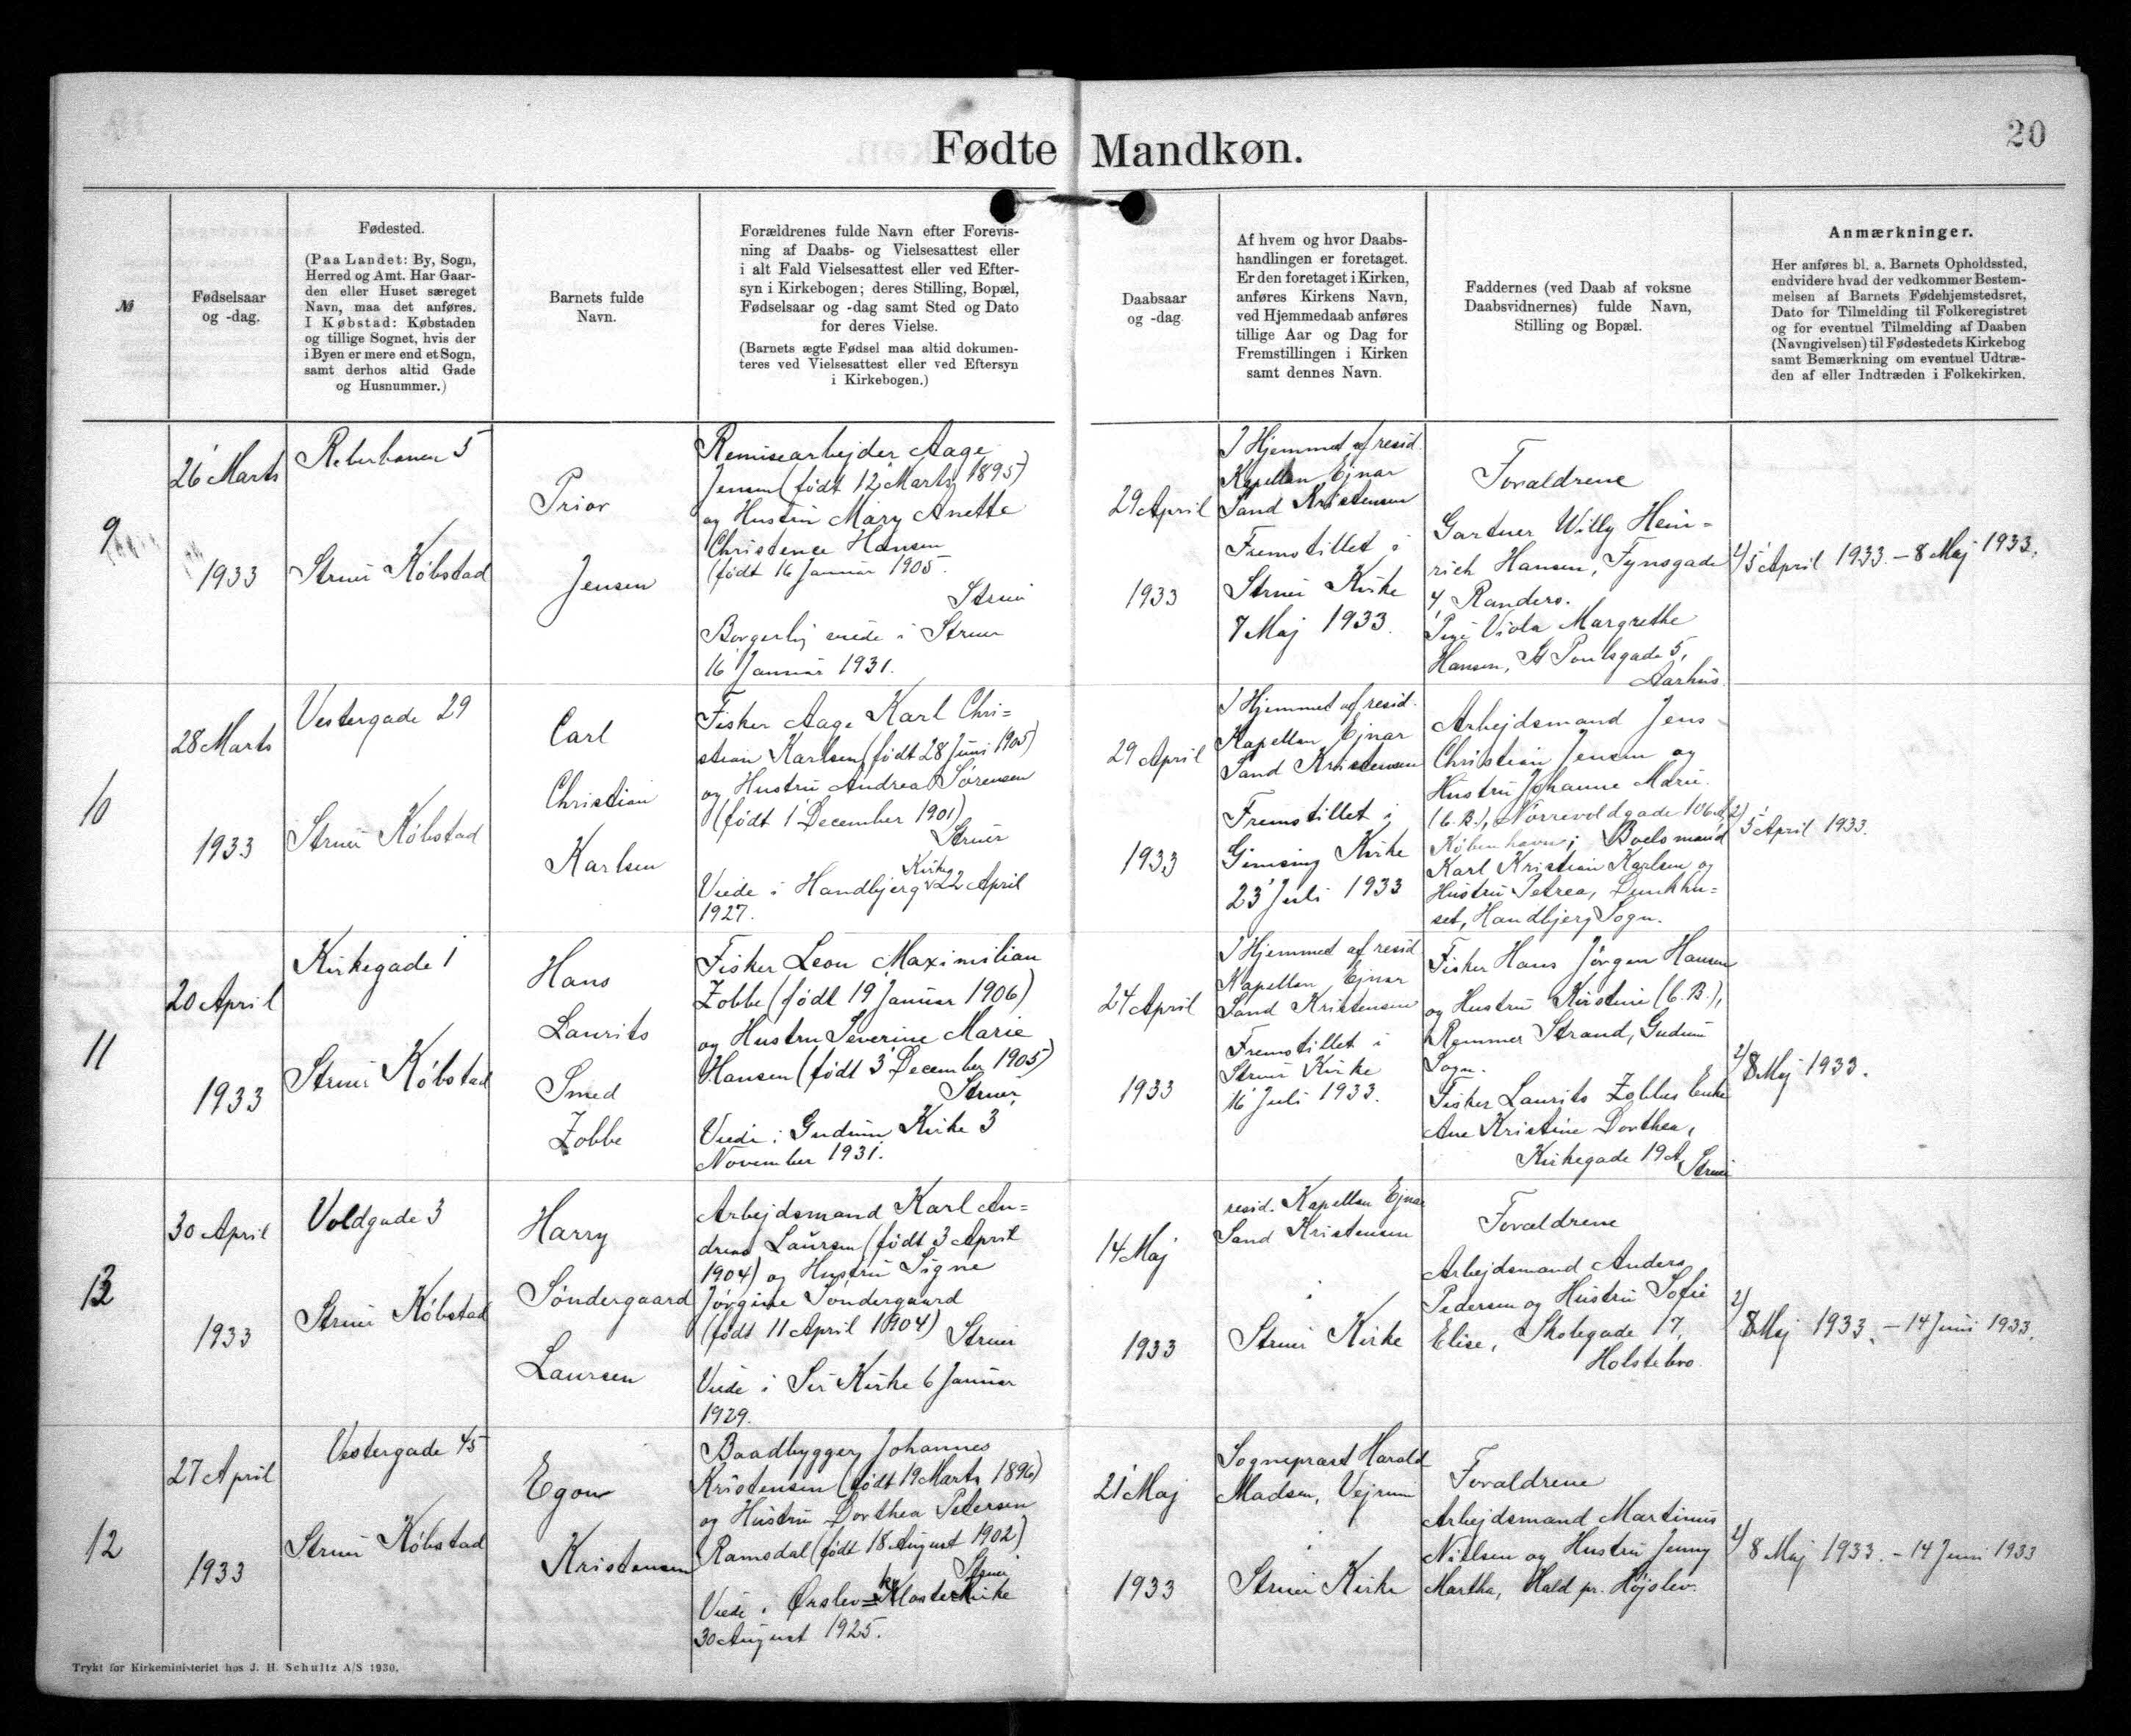 20
Fødte Mandkøn.
№
Fødselsaar
og -dag.
Fødested.
(Paa Landet: By, Sogn,
Herred og Amt. Har Gaar-
den eller Huset særeget
Navn, maa det anføres.
I Købstad: Købstaden
og tillige Sognet, hvis der
i Byen er mere end et Sogn,
samt derhos altid Gade
og Husnummer.)
Barnets fulde
Navn.
Forældrenes fulde Navn efter Forevis-
ning af Daabs- og Vielsesattest eller
i alt Fald Vielsesattest eller ved Efter-
syn i Kirkebogen; deres Stilling, Bopæl,
Fødselsaar og -dag samt Sted og Dato
for deres Vielse.
(Barnets ægte Fødsel maa altid dokumen-
teres ved Vielsesattest eller ved Eftersyn
i Kirkebogen.)
Daabsaar
og -dag.
Af hvem og hvor Daabs-
handlingen er foretaget.
Er den foretaget i Kirken,
anføres Kirkens Navn,
ved Hjemmedaab anføres
tillige Aar og Dag for
Fremstillingen i Kirken
samt dennes Navn.
Faddernes (ved Daab af voksne
Daabsvidnernes) fulde Navn,
Stilling og Bopæl.
Anmærkninger.
Her anføres bl. a. Barnets Opholdssted,
endvidere hvad der vedkommer Bestem-
melsen af Barnets Fødehjemstedsret,
Dato for Tilmelding til Folkeregistret
og for eventuel Tilmelding af Daaben
(Navngivelsen) til Fødestedets Kirkebog
samt Bemærkning om eventuel Udtræ-
den af eller Indtræden i Folkekirken.
9
26 Marts
1933
Reberbanen 5
Struer Købstad
Prior
Jensen
Remisearbejder Aage
Jensen (født 12 Marts 1895)
og Hustru Mary Anette
Christence Hansen
(født 16 Januar 1905.
Struer
Borgerlig viede i Struer
16 Januar 1931.
29 April
1933
I Hjemmet af resid.
Kapellan Ejnar
Sand Kristensen
Fremstillet i
Struer Kirke
7 Maj 1933.
Forældrene
Gartner Willy Hein-
rich Hansen, Fynsgade
4, Randers.
Pige Viola Margrethe
Hansen, St Poulsgade 5,
Aarhus.
2) 5 April 1933. - 8 Maj 1933.
10
28 Marts
1933
Vestergade 29
Struer Købstad
Carl
Christian
Karlsen
Fisker Aage Karl Chri=
stian Karlsen (født 28 Juni 1905)
og Hustru Andrea Sørensen
(født 1 December 1901)
Struer
Viede i Handbjerg Kirke 22 April
1927.
29 April
1933
I Hjemmet af resid.
Kapellan Ejnar
Sand Kristensen
Fremstillet i
Gimsing Kirke
23 Juli 1933
Arbejdsmand Jens
Christian Jensen og
Hustru Johanne Marie
(C. B.), Nørrevoldgade 106 A,
København; Boelsmand
Karl Kristian Karlsen og
Hustru Petrea, Dunkhu=
set, Handbjerg Sogn.
2) 5 April 1933.
11
20 April
1933
Kirkegade 1
Struer Købstad
Hans
Laurits
Smed
Zobbe
Fisker Leon Maximilian
Zobbe (født 19 Januar 1906)
og Hustru Severine Marie
Hansen (født 3 December 1905)
Struer
Viede i Gudum Kirke 3
November 1931.
24 April
1933
I Hjemmet af resid
Kapellan Ejnar
Sand Kristensen
Fremstillet i
Struer Kirke
16 Juli 1933.
Fisker Hans Jørgen Hansen
og Hustru Kirstine (C. B.),
Remmer Strand, Gudum
Sogn.
Fisker Laurits Zobbes Enke
Ane Kristine Dorthea,
Kirkegade 19 A, Struer
2) 8 Maj 1933.
13
30 April
1933
Voldgade 3
Struer Købstad
Harry
Søndergaard
Laursen
Arbejdsmand Karl An=
dreas Laursen (født 3 April
1904) og Hustru Signe
Jørgine Søndergaard
(født 11 April 1904)
Struer
Viede i Sir Kirke 6 Januar
1929.
14 Maj
1933
resid. Kapellan Ejnar
Sand Kristensen
i
Struer Kirke
Forældrene
Arbejdsmand Anders
Pedersen og Hustru Sofie
Elise, Skolegade 17,
Holstebro.
2) 8 Maj 1933. - 14 Juni 1933.
12
27 April
1933
Vestergade 45
Struer Købstad
Egon
Kristensen
Baadbygger Johannes
Kristensen (født 19 Marts 1896)
og Hustru Dorthea Petersen
Ramsdal (født 18 August 1902)
Struer
Viede i Ørslev=Kloster Kirke
30 August 1925.
21 Maj
1933
Sognepræst Harald
Madsen, Vejrum
i
Struer Kirke
Forældrene
Arbejdsmand Martinus
Nielsen og Hustru Jenny
Martha, Hald pr. Højslev.
2) 8 Maj 1933. - 14 Juni 1933
Trykt for Kirkeministeriet hos J. H. Schultz A/S 1930.